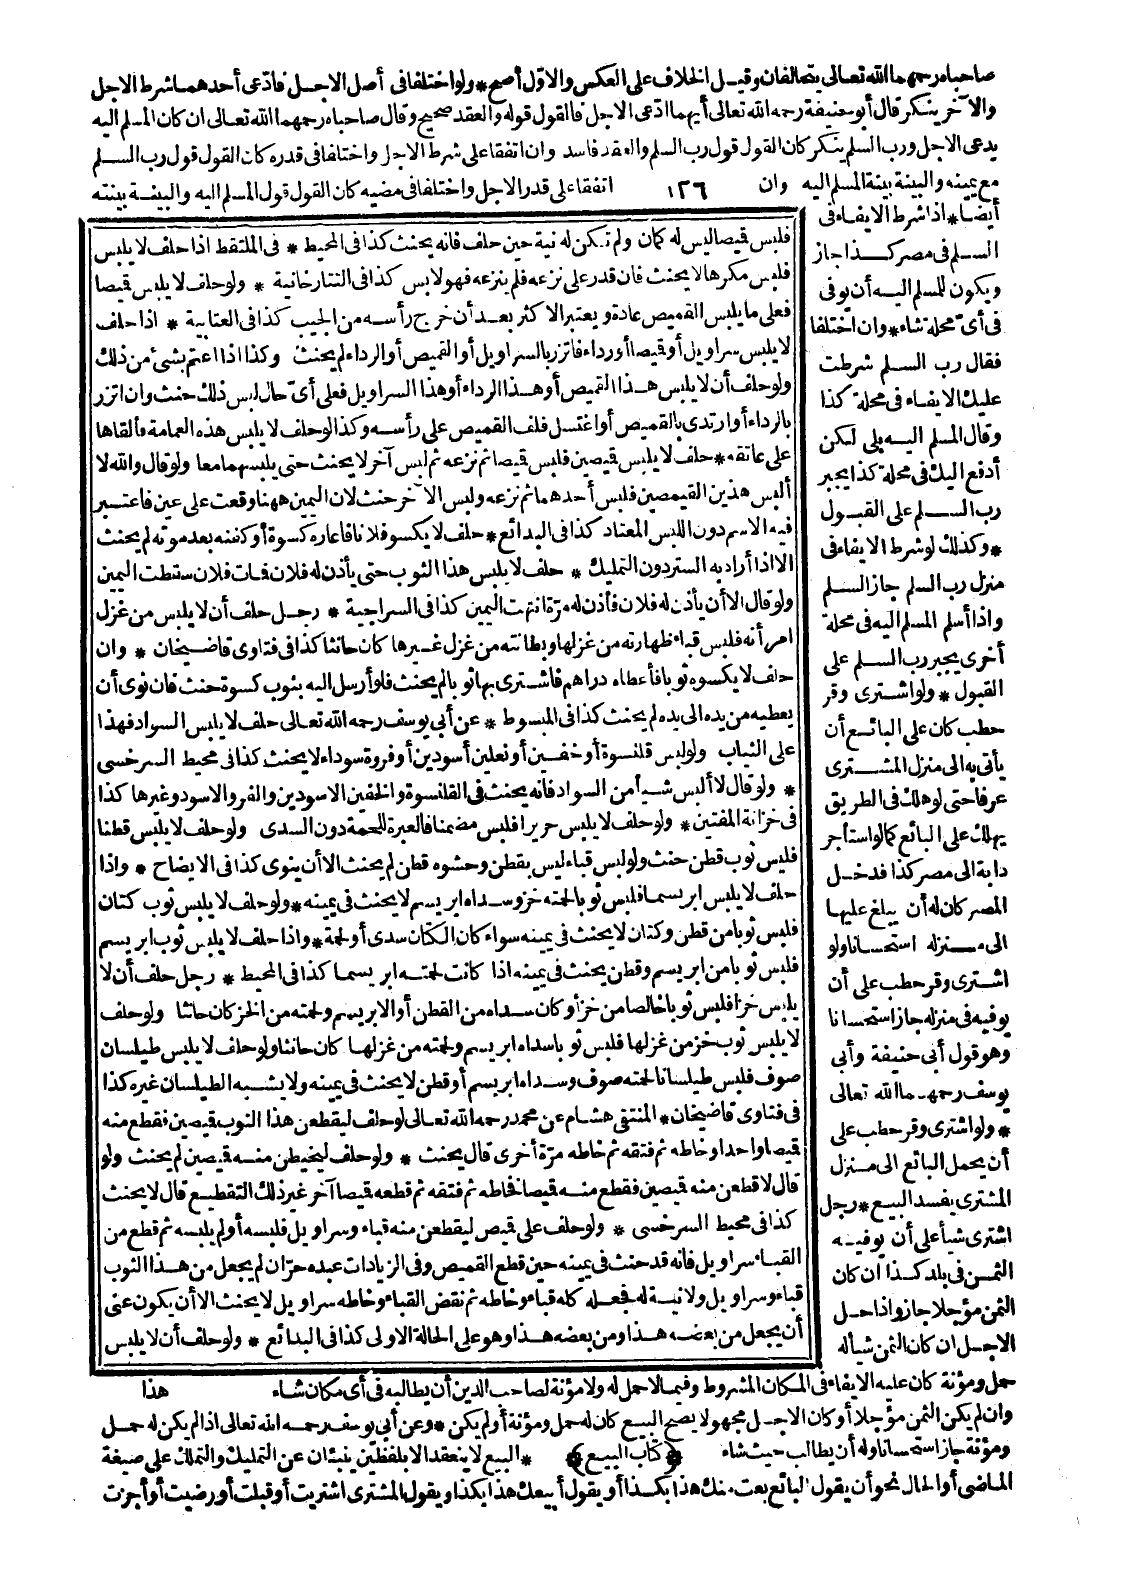 صاحباه رحمهما الله تعالى يتحالفان وقيل الخلاف على العكس والاول أصح * ولو اختلفا فى أصل الاجل فادعى أحدهما شرط الاجل
والآخر ينكر قال أبو حنيفة رحمه الله تعالى أيهما ادعى الاجل فالقول قوله والعقد صحيح وقال صاحباه رحمهما الله تعالى ان كان المسلم اليه
يدعى الاجل ورب السلم ينكر كان القول قول رب السلم والعقد فاسد وان اتفقا على شرط الاجل واختلفا فى قدره كان القول قول رب السلم
مع يمينه والبينة بينة المسلم اليه وان ١٢٦ اتفقا على قدر الاجل واختلفا فى مضيه كان القول قول المسلم اليه والبينة بينته
أيضا * اذا شرط الايفاء فى
السلم فى مصر كذا جاز
ويكون للمسلم اليه أن يوفى
فى أى محلة شاء * وان اختلفا
فقال رب السلم شرطت
عليك الايفاء فى محلة كذا
وقال المسلم اليه بلى لكن
أدفع اليك فى محلة كذا يجبر
رب السلم على القبول
* وكذلك لو شرط الايفاء فى
منزل رب السلم جاز السلم
واذا أسلم المسلم اليه فى محلة
أخرى يجبر رب السلم على
القبول * ولو اشترى وقر
حطب كان على البائع أن
يأتى به الى منزل المشترى
عرفا حتى لو هلك فى الطريق
يهلك على البائع كما لو استأجر
دابة الى مصر كذا فدخل
المصر كان له أن يبلغ عليها
الى منزله استحسانا ولو
اشترى وقر حطب على أن
يوفيه فى منزله جاز استحسانا
وهو قول أبى حنيفة وأبى
يوسف رحمهما الله تعالى
* ولو اشترى وقر حطب على
أن يحمل البائع الى منزل
المشترى يفسد البيع * رجل
اشترى شيأ على أن يوفيه
الثمن فى بلد كذا ان كان
الثمن مؤجلا جاز واذا حل
الاجل ان كان الثمن شيأ له
فلبس قميصا ليس له كمان ولم تكن له نية حين حلف فانه يحنث كذا فى المحيط * فى الملتقط اذا حلف لا يلبس
فلبس مكرها لا يحنث فان قدر على نزعه فلم ينزعه فهو لابس كذا فى التتارخانية * ولو حلف لا يلبس قميصا
فعلى ما يلبس القميص عادة ويعتبر الاكثر بعد أن خرج رأسه من الجيب كذا فى العتابية * اذا حلف
لا يلبس سراويل أو قميصا أو رداء فاتزر بالسراويل أو القميص أو الرداء لم يحنث وكذا اذا اعتم بشئ من ذلك
ولو حلف أن لا يلبس هذا القميص أو هذا الرداء أو هذا السراويل فعلى أى حال لبس ذلك حنث وان اتزر
بالرداء أو ارتدى بالقميص أو اغتسل فلف القميص على رأسه وكذا لو حلف لا يلبس هذه العمامة فألقاها
على عاتقه * حلف لا يلبس قميصين فلبس قميصا ثم نزعه ثم لبس آخر لا يحنث حتى يلبسهما معا ولو قال والله لا
ألبس هذين القميصين فلبس أحدهما ثم نزعه ولبس الآخر حنث لان اليمين ههنا وقعت على عين فاعتبر
فيه الاسم دون اللبس المعتاد كذا فى البدائع * حلف لا يكسو فلانا فاعاره كسوة أو كفنه بعد موته لم يحنث
الا اذا أراد به الستر دون التمليك * حلف لا يلبس هذا الثوب حتى يأذن له فلان فمات فلان سقطت اليمين
ولو قال الا أن يأذن له فلان فأذن له مرة انتهت اليمين كذا فى السراجية * رجل حلف أن لا يلبس من غزل
امرأته فلبس قباء ظهارته من غزلها وبطانته من غزل غيرها كان حانثا كذا فى فتاوى قاضيخان * وان
حلف لا يكسوه ثوبا فأعطاه دراهم فاشترى بها ثوبا لم يحنث فلو أرسل اليه بثوب كسوة حنث فان نوى أن
يعطيه من يده الى يده لم يحنث كذا فى المبسوط * عن أبى يوسف رحمه الله تعالى حلف لا يلبس السواد فهذا
على الثياب ولو لبس قلنسوة أو خفين أو نعلين أسودين أو فروة سوداء لا يحنث كذا فى محيط السرخسى
* ولو قال لا ألبس شيأ من السواد فانه يحنث فى القلنسوة والخفين الاسودين والفرو الاسود وغيرها كذا
فى خزانة المفتين * ولو حلف لا يلبس حريرا فلبس مصمتا فالعبرة للحمة دون السدى ولو حلف لا يلبس قطنا
فلبس ثوب قطن حنث ولو لبس قباء ليس بقطن وحشوه قطن لم يحنث الا أن ينوى كذا فى الايضاح * واذا
حلف لا يلبس ابريسما فلبس ثوبا لحمته خز وسداه ابريسم لا يحنث فى يمينه * ولو حلف لا يلبس ثوب كتان
فلبس ثوبا من قطن وكتان لا يحنث فى يمينه سواء كان الكتان سدى أو لحمة * واذا حلف لا يلبس ثوب ابريسم
فلبس ثوبا من ابريسم وقطن يحنث فى يمينه اذا كانت لحمته ابريسما كذا فى المحيط * رجل حلف أن لا
يلبس خزا فلبس ثوبا خالصا من خز أو كان سداه من القطن أو الابريسم ولحمته من الخز كان حانثا ولو حلف
لا يلبس ثوب خز من غزلها فلبس ثوبا سداه ابريسم ولحمته من غزلها كان حانثا ولو حلف لا يلبس طيلسان
صوف فلبس طيلسانا لحمته صوف وسداه ابريسم أو قطن لا يحنث فى يمينه ولا يشبه الطيلسان غيره كذا
فى فتاوى قاضيخان * المنتقى هشام عن محمد رحمه الله تعالى لو حلف ليقطعن هذا الثوب قميصين فقطع منه
قميصا واحدا وخاطه ثم فتقه ثم خاطه مرة أخرى قال يحنث * ولو حلف ليخيطن منه قميصين لم يحنث ولو
قال لاقطعن منه قميصين فقطع منه قميصا فخاطه ثم فتقه ثم قطعه قميصا آخر غير ذلك التقطيع قال لا يحنث
كذا فى محيط السرخسى * ولو حلف على قميص ليقطعن منه قباء وسراويل فلبسه أو لم يلبسه ثم قطع من
القباء سراويل فانه قد حنث فى يمينه حين قطع القميص وفى الزيادات عبده حر ان لم يجعل من هذا الثوب
قباء وسراويل ولا نية له فجعله كله قباء وخاطه ثم نقض القباء وخاطه سراويل لا يحنث الا أن يكون عنى
أن يجعل من بعضه هذا ومن بعضه هذا وهو على الحالة الاولى كذا فى البدائع * ولو حلف أن لا يلبس
حمل ومؤنة كان عليه الايفاء فى المكان المشروط وفيما لا حمل له ولا مؤنة لصاحب الدين أن يطالبه فى أى مكان شاء هذا
وان لم يكن الثمن مؤجلا أو كان الاجل مجهولا يصح البيع كان له حمل ومؤنة أو لم يكن * وعن أبى يوسف رحمه الله تعالى اذا لم يكن له حمل
ومؤنة جاز استحسانا وله أن يطالب حيث شاء ﴿كتاب البيع﴾ * البيع لا ينعقد الا بلفظين ينبئان عن التمليك والتملك على صيغة
الماضى أو الحال نحو أن يقول البائع بعت منك هذا بكذا أو يقول أبيعك هذا بكذا ويقول المشترى اشتريت أو قبلت أو رضيت أو أجزت